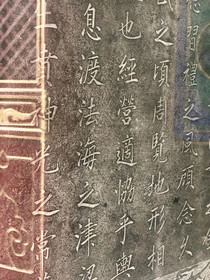 習禮之風顧念久
之頃周覽地形相
也經營適協乎輿
息渡法海之津梁
音神光之常